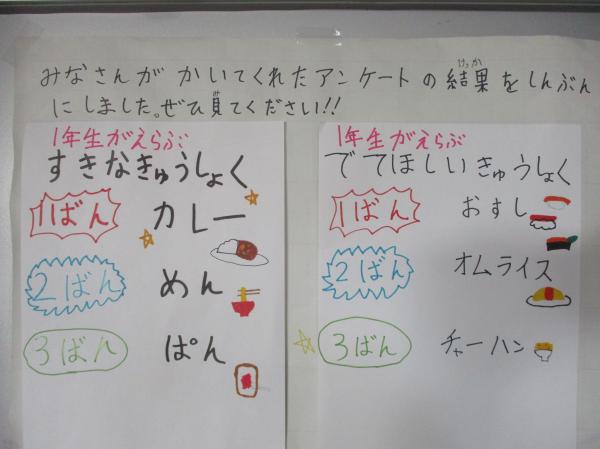 みなさんがかいてくれたアンケートの結果をしんぶん
にしました。ぜひ見てください!!
1年生がえらぶ
すきなきゅうしょく
1ばん カレー
2ばん めん
3ばん ぱん
1年生がえらぶ
でてほしいきゅうしょく
1ばん おすし
2ばん オムライス
3ばん チャーハン